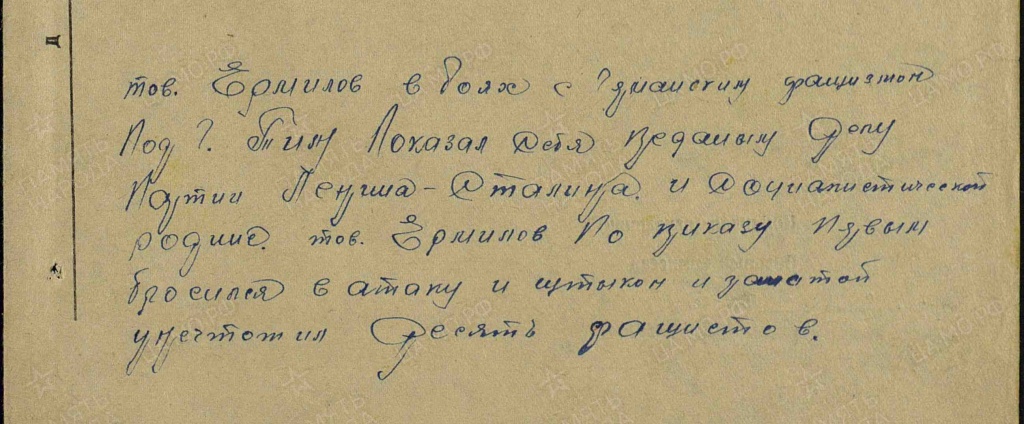 тов. Ермилов в боях с Германским фашизмом
Под г. Тим Показал себя преданым Делу
Партии Ленина-Сталина. и Социалистической
родине. тов. Ермилов По приказу Первым
бросился в атаку и штыком и гранатой
унечтожил Десять фашистов.